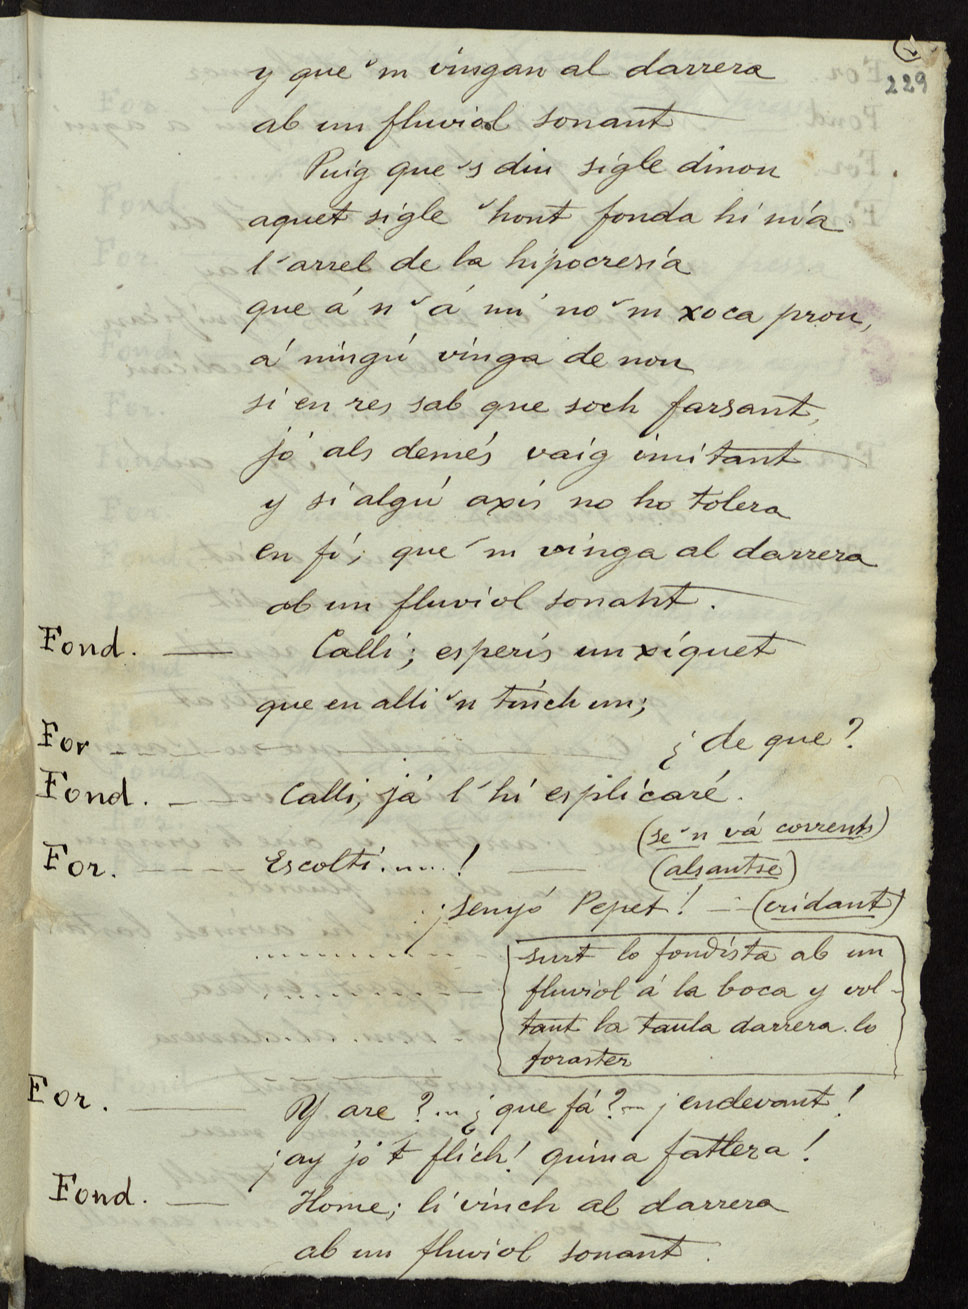 229
y que 'm vingan al darrera
ab un fluviol sonant
Puig que 's diu sigle dinou
aquet sigle 'hont fonda hi n'á
l'arrel de la hipocresía
que á n' á mí no 'm xoca prou,
á ningú vinga de nou
si en res sab que soch farsant,
jó als demés vaig imitant
y si algú axís no ho tolera
en fí; que 'm vinga al darrera
ab un fluviol sonant.
Fond. — Calli; esperis un xiquet
que en alli 'n tinch un;
For — ¿de que?
Fond. — Calli, já l'hi esplicaré.
(se 'n vá corrents)
For. ---- Escolti.....! — (alsantse)
¡senyó Pepet! — (cridant)
surt lo fondista ab un
fluviol á la boca y vol-
tant la taula darrera lo
foraster
For. — Y are?... ¿que fá?... ¡endevant!
¡ay jó 't flich! quina fatlera!
Fond. — Home; li vinch al darrera
ab un fluviol sonant.